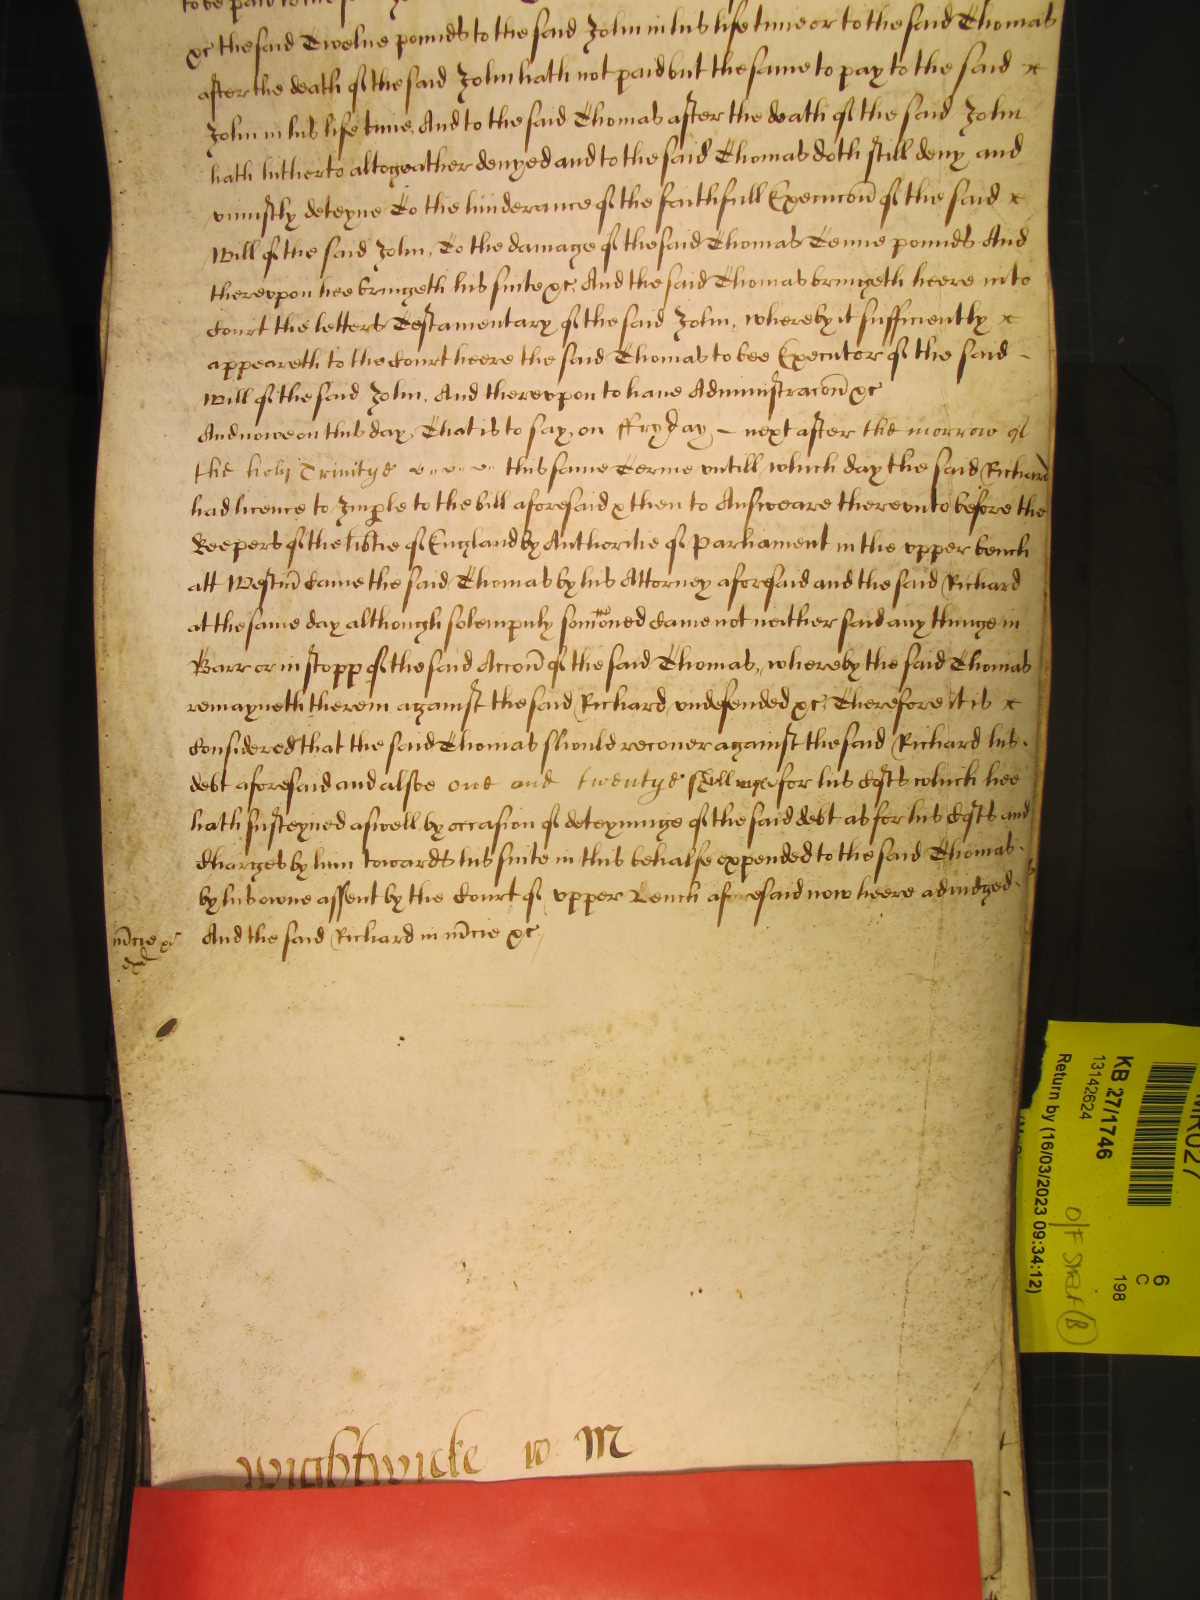 to be paid to the
&c the said Twelue pounds to the said John in his life time or to the said Thomas
after the death of the said John hath not paid but the same to pay to the said x
John in his life time. And to the said Thomas after the death of the said John
hath hitherto altogeather denyed and to the said Thomas doth still deny and
vniustly deteyne To the hinderance of the faithfull Execucoñ of the said x
Will of the said John. To the damage of the said Thomas Tenne pounds And
therevpon hee bringeth his suite &c. And the said Thomas bringeth heere into
Court the letters Testamentary of the said John, whereby it sufficiently x
appeareth to the Court heere the said Thomas to bee Executor of the said -
Will of the said John. And therevpon to haue Administracoñ &c
And nowe on this day, That is to say, on ffryday - next after the morrow of
the holy Trinitye this same Terme vntill which day the said Richard
had licence to Imple to the bill aforesaid & then to Answeare therevnto before the
Keepers of the libtie of England by Authoritie of Parliament in the vpper bench
att Westm̃ Came the said Thomas by his Attorney aforesaid and the said Richard
at the same day although solempnly som̃oned Came not neither said any thinge in
Barr or in stopp of the said Accoñ of the said Thomas, whereby the said Thomas
remayneth therein against the said Richard vndefended &c. Therefore it is x
Considered that the said Thomas should recouer against the said Richard his
debt aforesaid and alsoe one and twentye shillinges for his Costs which hee
hath susteyned aswell by occasion of deteyninge of the said debt as for his Costs and
Charges by him towards his suite in this behalfe expended to the said Thomas
by his owne assent by the Court of vpper Bench aforesaid now heere adiudged.
m̃cie &c
And the said Richard in m̃cie &c
Wightwicke w M
MR027
KB 27/1746
13142624
Return by (16/03/2023 09:34:12)
6
C
198
O/F
(B)